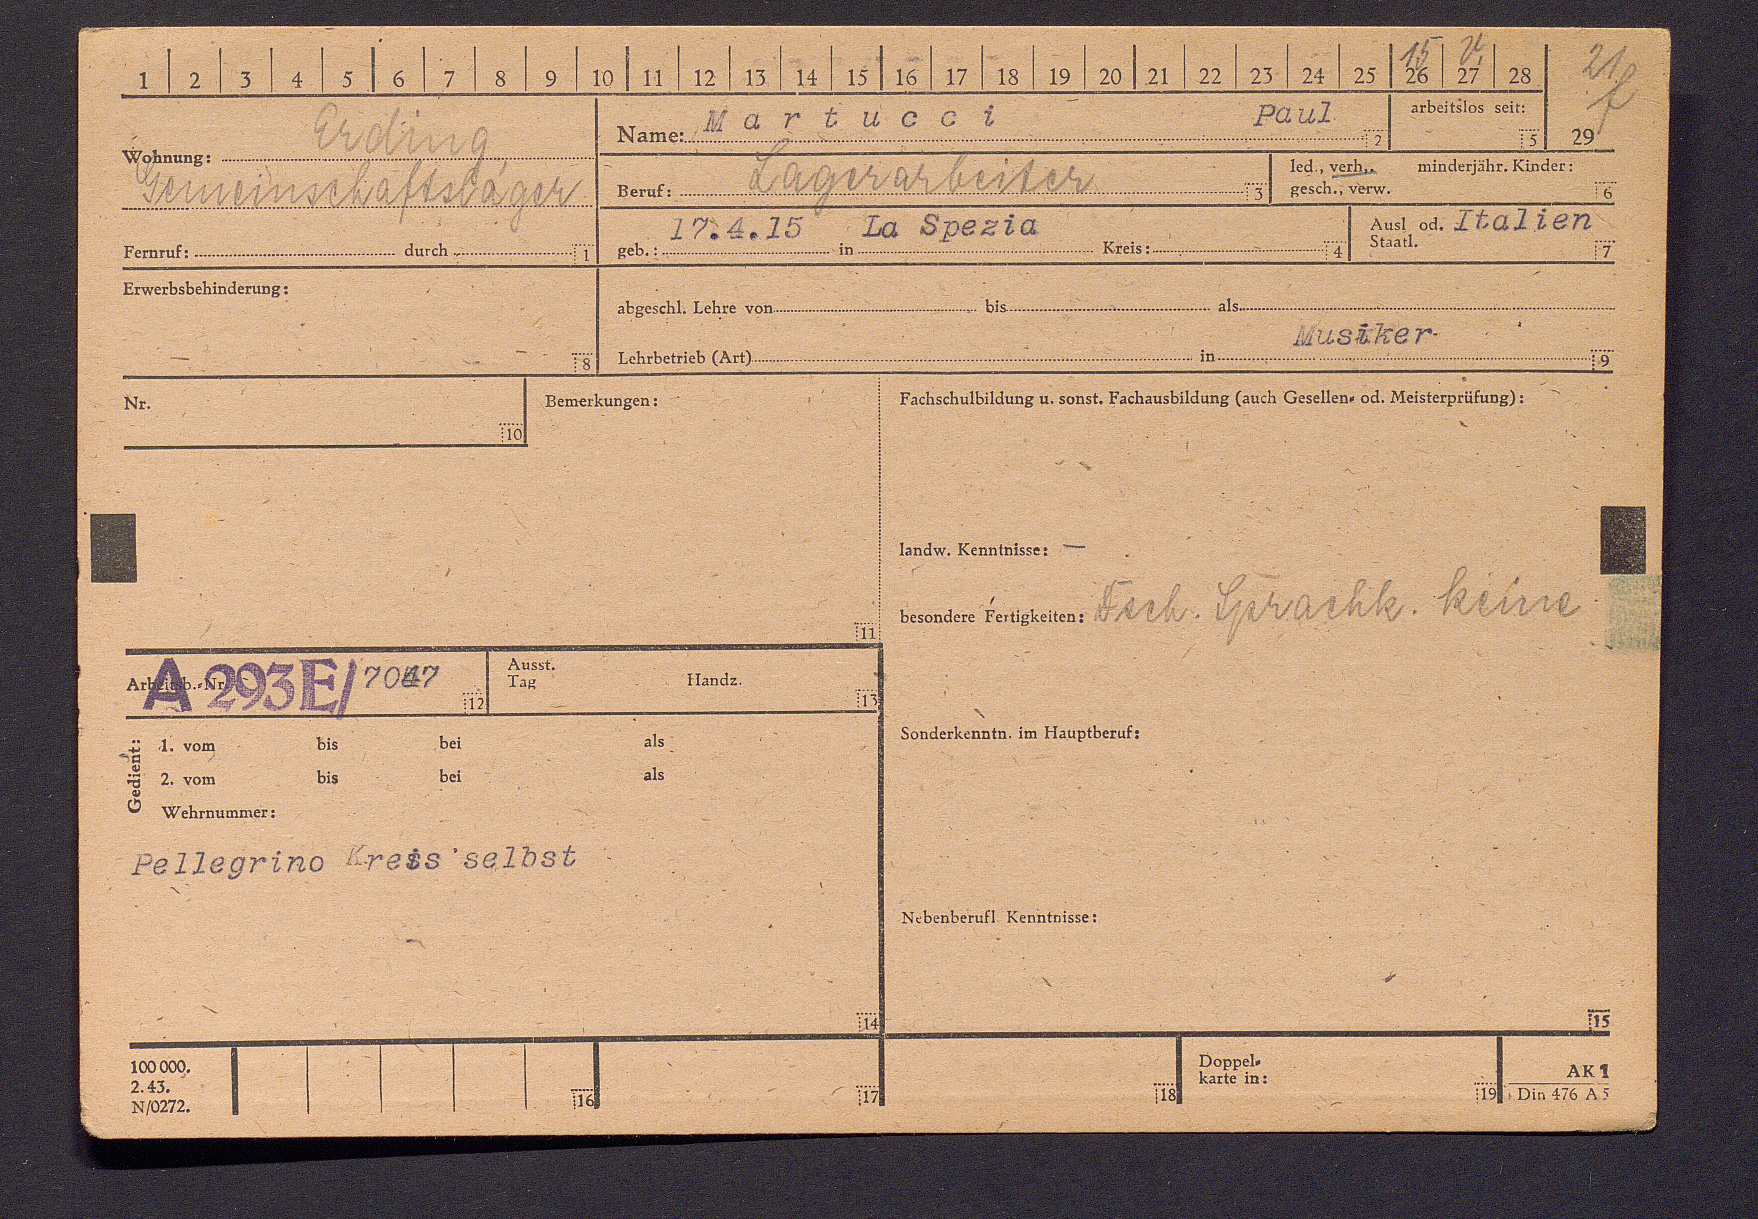 1 2 3 4 5 6 7 8 9 10 11 12 13 14 15 16 17 18 19 20 21 22 23 24 25 26 27 28
15 V. 21
Erding,
Wohnung:
Gemeinschaftslager
Fernruf: durch 1
Name: Martucci Paul 2
arbeitslos seit: 5
29
Beruf: Lagerarbeiter 3
led., verh., minderjähr. Kinder:
gesch., verw. 6
geb.: 17.4.15 in La Spezia Kreis: 4
Ausl od. Italien
Staatl. 7
Erwerbsbehinderung:
– – 8
abgeschl. Lehre von bis als
Musiker
Lehrbetrieb (Art) in 9
Nr. 10
Bemerkungen:
11
Fachschulbildung u. sonst. Fachausbildung (auch Gesellen- od. Meisterprüfung):
landw. Kenntnisse: –
besondere Fertigkeiten: Dtsch. Sprachk. keine
Arbeitsb.-Nr. A 293E/ 7047 12
Ausst.
Tag Handz. 13
Sonderkenntn. im Hauptberuf:
Gedient:
1. vom bis bei als
2. vom bis bei als
Wehrnummer:
Pellegrino Kreis selbst
14
Nebenberufl. Kenntnisse:
15
100 000.
2. 43.
N/0272.
16 17 18
Doppel-
karte in: 19
AK 1
Din 476 A 5